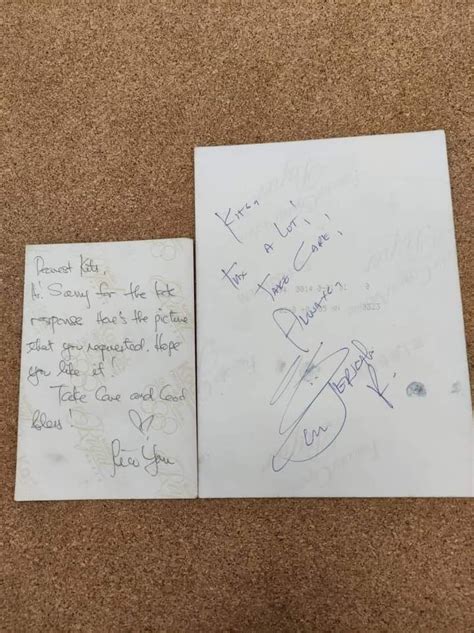 Dearest Kits,
Hi! Sorry for the late
response. Here's the picture
that you requested. Hope
you like it!
Take Care and God
bless!
Rico Yan
Kits,
Tnx A Lot!
Take Care!
Always